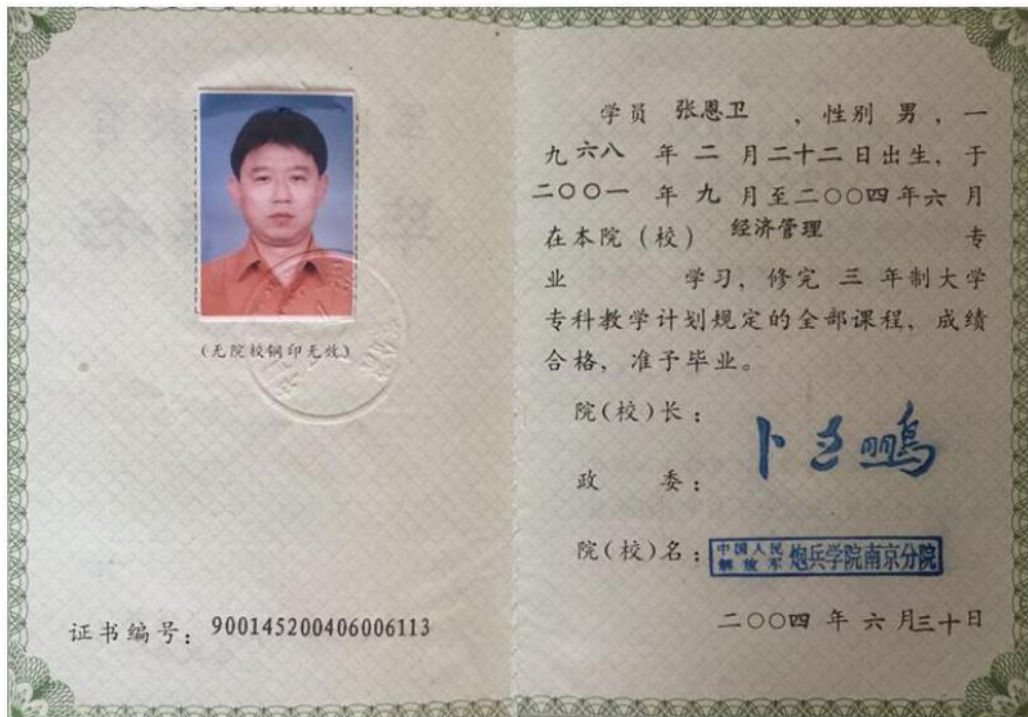 (无院校钢印无效)
证书编号：900145200406006113
学员 张恩卫 ，性别 男，一
九六八 年 二 月二十二日出生，于
二〇〇一 年 九 月至二〇〇四年六 月
在本院（校） 经济管理 专
业 学习，修完 三 年制大学
专科教学计划规定的全部课程，成绩
合格，准予毕业。
院(校)长：
政 委：
院(校)名：中国人民解放军 炮兵学院南京分院
二〇〇四 年 六 月三十日